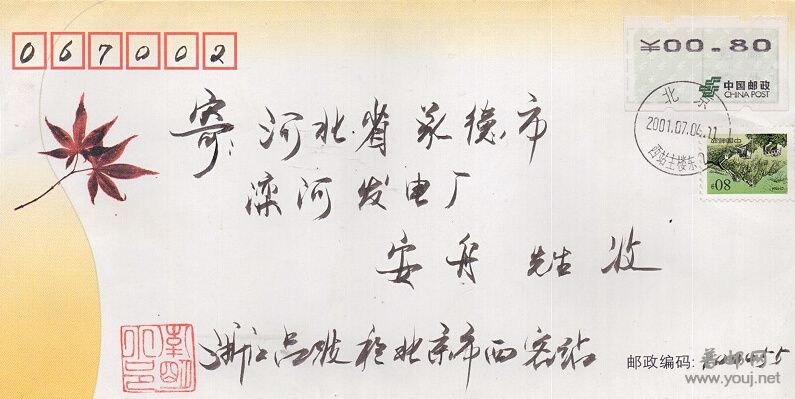 067002
¥00.80
中国邮政
CHINA POST
北京
2001.07.04.11
西站主楼东
寄：河北省承德市
滦河发电厂
安舟 先生 收
80分
浙江品波于北京市西客站
邮政编码：
善邮网
www.youj.net